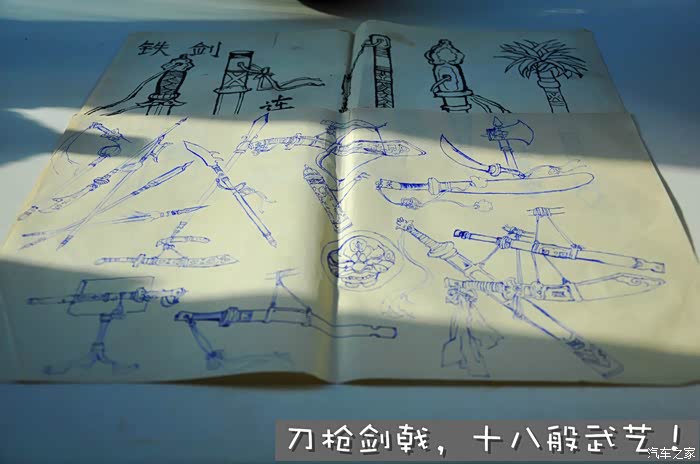 铁剑
连
刀枪剑戟，十八般武艺！
汽车之家